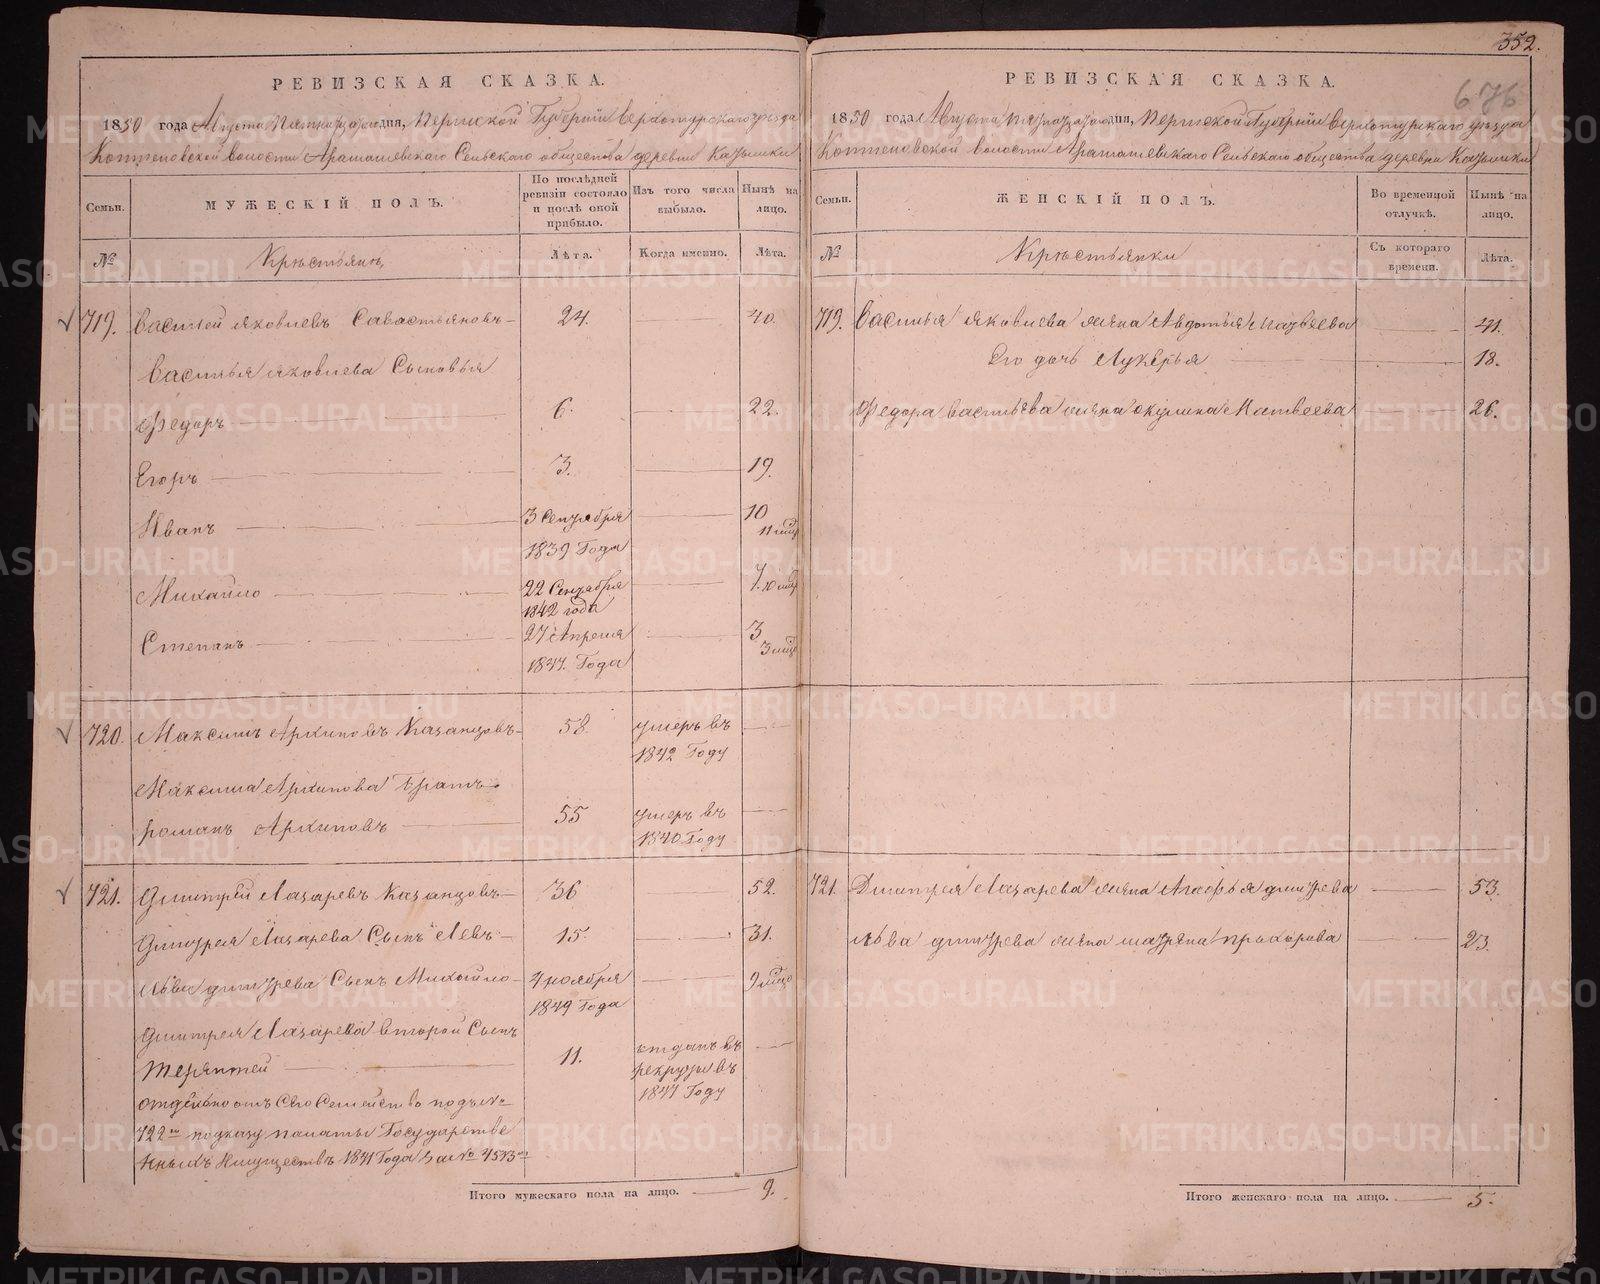 352.
676
РЕВИЗСКАЯ СКАЗКА.
1850 года Августа Пятнадцатаго дня, Пермской Губерніи Верхотурскаго уезда
Коптеловской волости Арамашевскаго Сельскаго общества деревни
Семьи.
МУЖЕСКІЙ ПОЛЪ.
По послѣдней ревизіи состояло и послѣ оной прибыло.
Изъ того числа выбыло.
Нынѣ на лицо.
№
Крестьянъ
Лѣта.
Когда именно.
Лѣта.
719. Василей Яковлевъ Савастьяновъ 24. 40.
Василья Яковлева Сыновья
Федоръ 6. 22.
Егоръ 3. 19.
Иванъ 3 Сентября 1839 Года 10 11 мцъ
Михайло 22 Сентября 1842 года 7. 10 мцъ
Степанъ 27 Апреля 1847. Года 3 3 мцъ
720. Максимъ Архиповъ Казанцовъ 58. умеръ въ 1842 Году
Максима Архипова Братъ
Романъ Архиповъ 55 умеръ въ 1840 Году
721. Дмитрей Лазаревъ Казанцовъ 36 52.
Дмитрея Лазарева Сынъ Левъ 15. 31.
Льва Дмитрева Сынъ Михайло 4 ноября 1849 Года 9 мцъ
Дмитрея Лазарева второй Сынъ
Терентей 11. отданъ въ рекруты въ 1847 Году
отдельно отъ Его Семейства подъ №
722 м по указу палаты Государстве
нныхъ Имуществъ 1841 Года за №
Итого мужескаго пола на лицо. 9.
РЕВИЗСКАЯ СКАЗКА.
1850 года Августа Пятнадцатаго дня, Пермской Губерніи Верхотурскаго уезда
Коптеловской волости Арамашевскаго Сельскаго общества деревни
Семьи.
ЖЕНСКІЙ ПОЛЪ.
Во временной отлучкѣ.
Нынѣ на лицо.
№
Крестьянки
Съ котораго времени.
Лѣта.
719. Василья Яковлева жена Авдотья Матвеева 41.
Его дочь Лукерья 18.
Федора Васильева жена Окулина Матвеева 26.
721. Дмитрея Лазарева жена Агафья Дмитрева 53.
Льва Дмитрева жена Матрена Прохорова 23.
Итого женскаго пола на лицо. 5.
METRIKI.GASO-URAL.RU